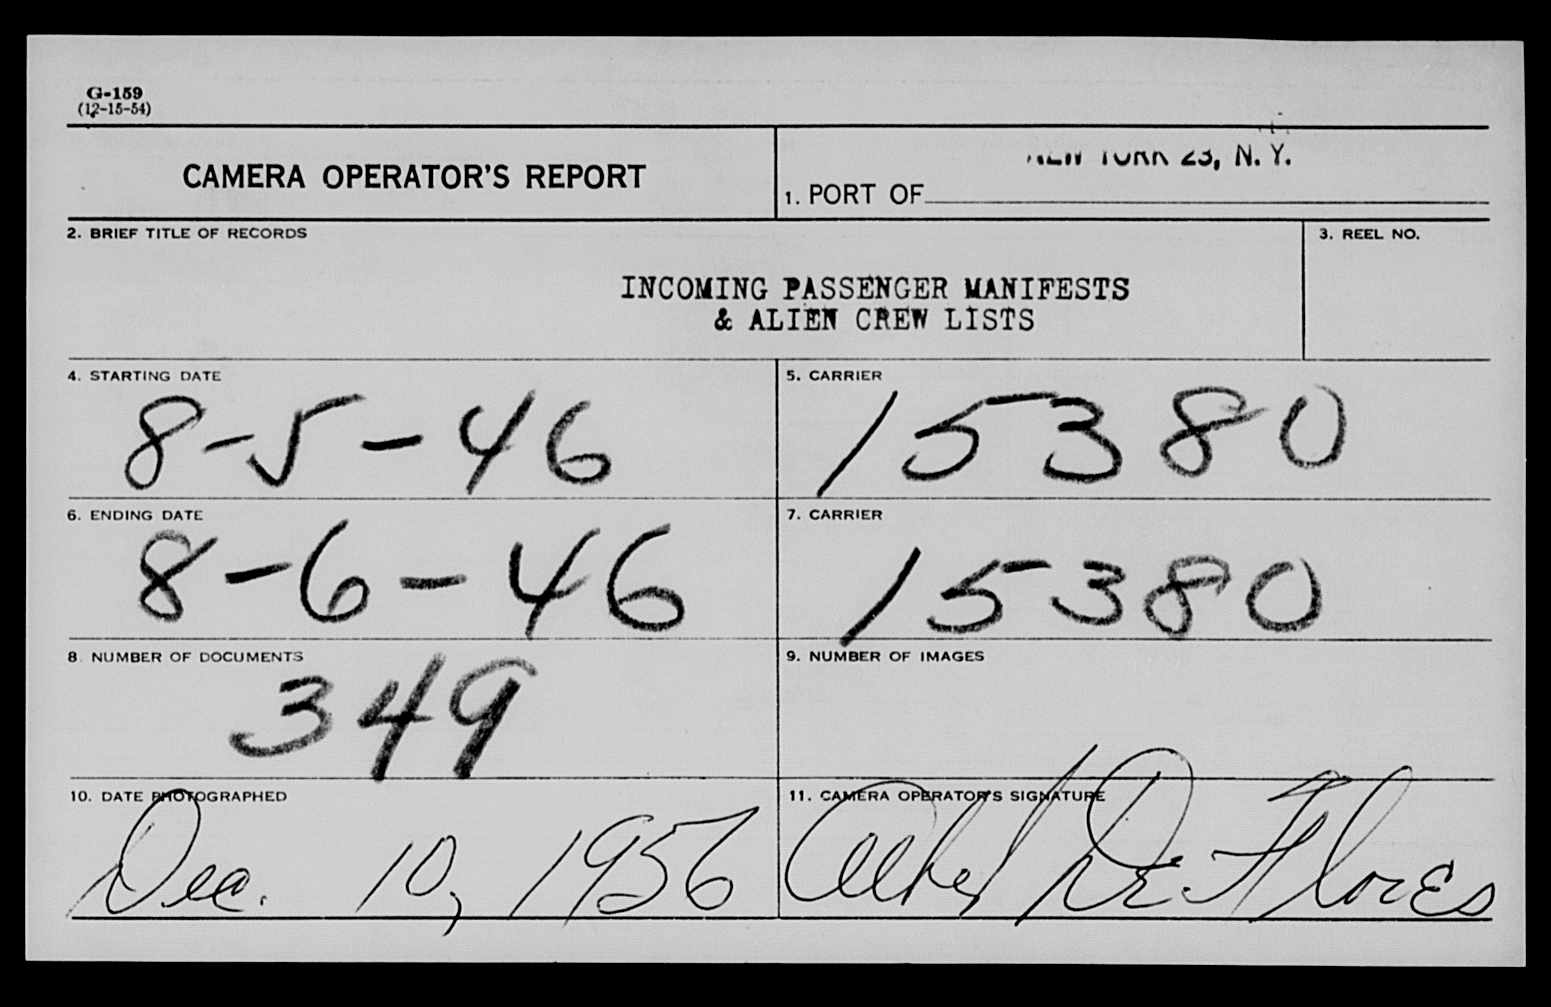 G-159
(12-15-54)
CAMERA OPERATOR'S REPORT
NEW YORK 23, N. Y.
1. PORT OF
2. BRIEF TITLE OF RECORDS
3. REEL NO.
INCOMING PASSENGER MANIFESTS
& ALIEN CREW LISTS
4. STARTING DATE
8-5-46
5. CARRIER
15380
6. ENDING DATE
8-6-46
7. CARRIER
15380
8. NUMBER OF DOCUMENTS
349
9. NUMBER OF IMAGES
10. DATE PHOTOGRAPHED
Dec. 10, 1956
11. CAMERA OPERATOR'S SIGNATURE
De Flores